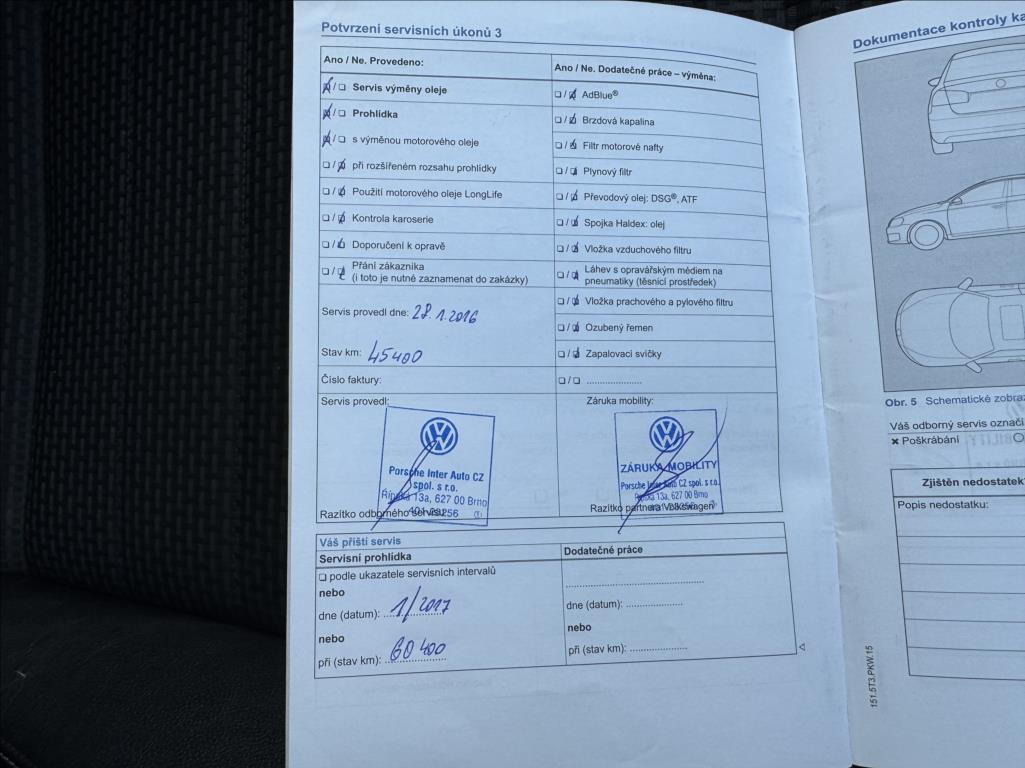 Potvrzení servisních úkonů 3
Ano / Ne. Provedeno:
Servis výměny oleje
Prohlídka
s výměnou motorového oleje
při rozšířeném rozsahu prohlídky
Použití motorového oleje LongLife
Kontrola karoserie
Doporučení k opravě
Přání zákazníka
(i toto je nutné zaznamenat do zakázky)
Servis provedl dne: 28.1.2016
Stav km: 45400
Číslo faktury:
Servis provedl:
Porsche Inter Auto CZ
spol. s r.o.
Řípská 13a, 627 00 Brno
Razítko odborného servisu
Ano / Ne. Dodatečné práce – výměna:
AdBlue®
Brzdová kapalina
Filtr motorové nafty
Plynový filtr
Převodový olej: DSG®, ATF
Spojka Haldex: olej
Vložka vzduchového filtru
Láhev s opravářským médiem na
pneumatiky (těsnicí prostředek)
Vložka prachového a pylového filtru
Ozubený řemen
Zapalovací svíčky
.....................
Záruka mobility:
ZÁRUKA MOBILITY
Porsche Inter Auto CZ spol. s r.o.
Řípská 13a, 627 00 Brno
Razítko partnera Volkswagen
Váš příští servis
Servisní prohlídka
podle ukazatele servisních intervalů
nebo
dne (datum): 1/2017
nebo
při (stav km): 60 400
Dodatečné práce
dne (datum): ...................
nebo
při (stav km): ...................
151.5T3.PKW.15
Dokumentace kontroly
Obr. 5 Schematické
Váš odborný servis
Poškrábání
Zjištěn nedostatek
Popis nedostatku: